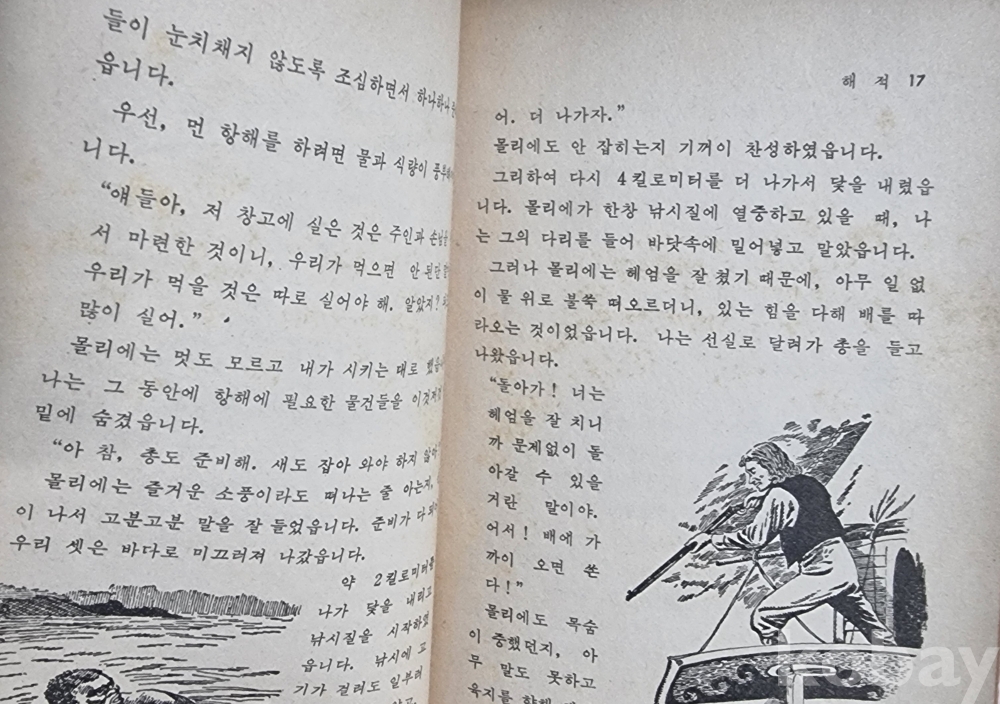 들이 눈치채지 않도록 조심하면서 하나하나
읍니다.
우선, 먼 항해를 하려면 물과 식량이
니다.
“얘들아, 저 창고에 실은 것은 주인과
서 마련한 것이니, 우리가 먹으면 안 된단
우리가 먹을 것은 따로 실어야 해. 알았지?
많이 실어.”
몰리에는 멋도 모르고 내가 시키는 대로
나는 그 동안에 항해에 필요한 물건들을
밑에 숨겼읍니다.
“아 참, 총도 준비해. 새도 잡아 와야 하지
몰리에는 즐거운 소풍이라도 떠나는 줄 아는지,
이 나서 고분고분 말을 잘 들었읍니다. 준비가 다
우리 셋은 바다로 미끄러져 나갔읍니다.
약 2킬로미터를
나가 닻을 내리고
낚시질을 시작하였
읍니다. 낚시에 고
기가 걸려도 일부러
해 적 17
어. 더 나가자.”
몰리에도 안 잡히는지 기꺼이 찬성하였읍니다.
그리하여 다시 4킬로미터를 더 나가서 닻을 내렸읍
니다. 몰리에가 한창 낚시질에 열중하고 있을 때, 나
는 그의 다리를 들어 바닷속에 밀어넣고 말았읍니다.
그러나 몰리에는 헤엄을 잘 쳤기 때문에, 아무 일 없
이 물 위로 불쑥 떠오르더니, 있는 힘을 다해 배를 따
라오는 것이었읍니다. 나는 선실로 달려가 총을 들고
나왔읍니다.
“돌아가! 너는
헤엄을 잘 치니
까 문제없이 돌
아갈 수 있을
거란 말이야.
어서! 배에 가
까이 오면 쏜
다!”
몰리에도 목숨
이 중했던지, 아
무 말도 못하고
육지를 향해